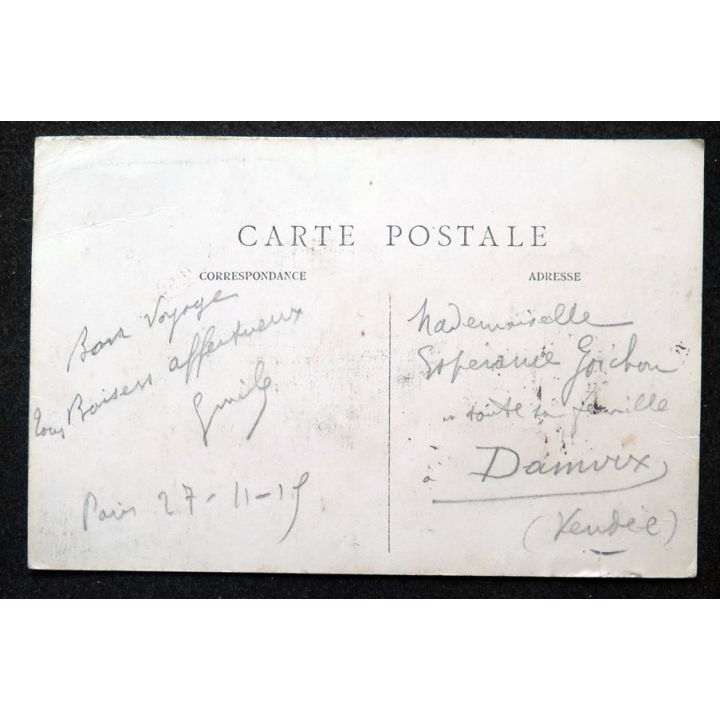 CARTE POSTALE
CORRESPONDANCE
Bon Voyage
Baisers affectueux
Paris 27-11-15
ADRESSE
Mademoiselle
Espérance Goichon
toute sa famille
à Damvix
(Vendée)